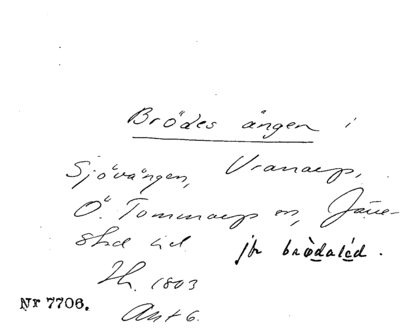 Brödes ången i
Sjövången, Vranarp,
Ö. Tommarp sn, Järre-
stad hd jfr bròdaléd.
Th. 1803
Akt 6.
Nr 7706.